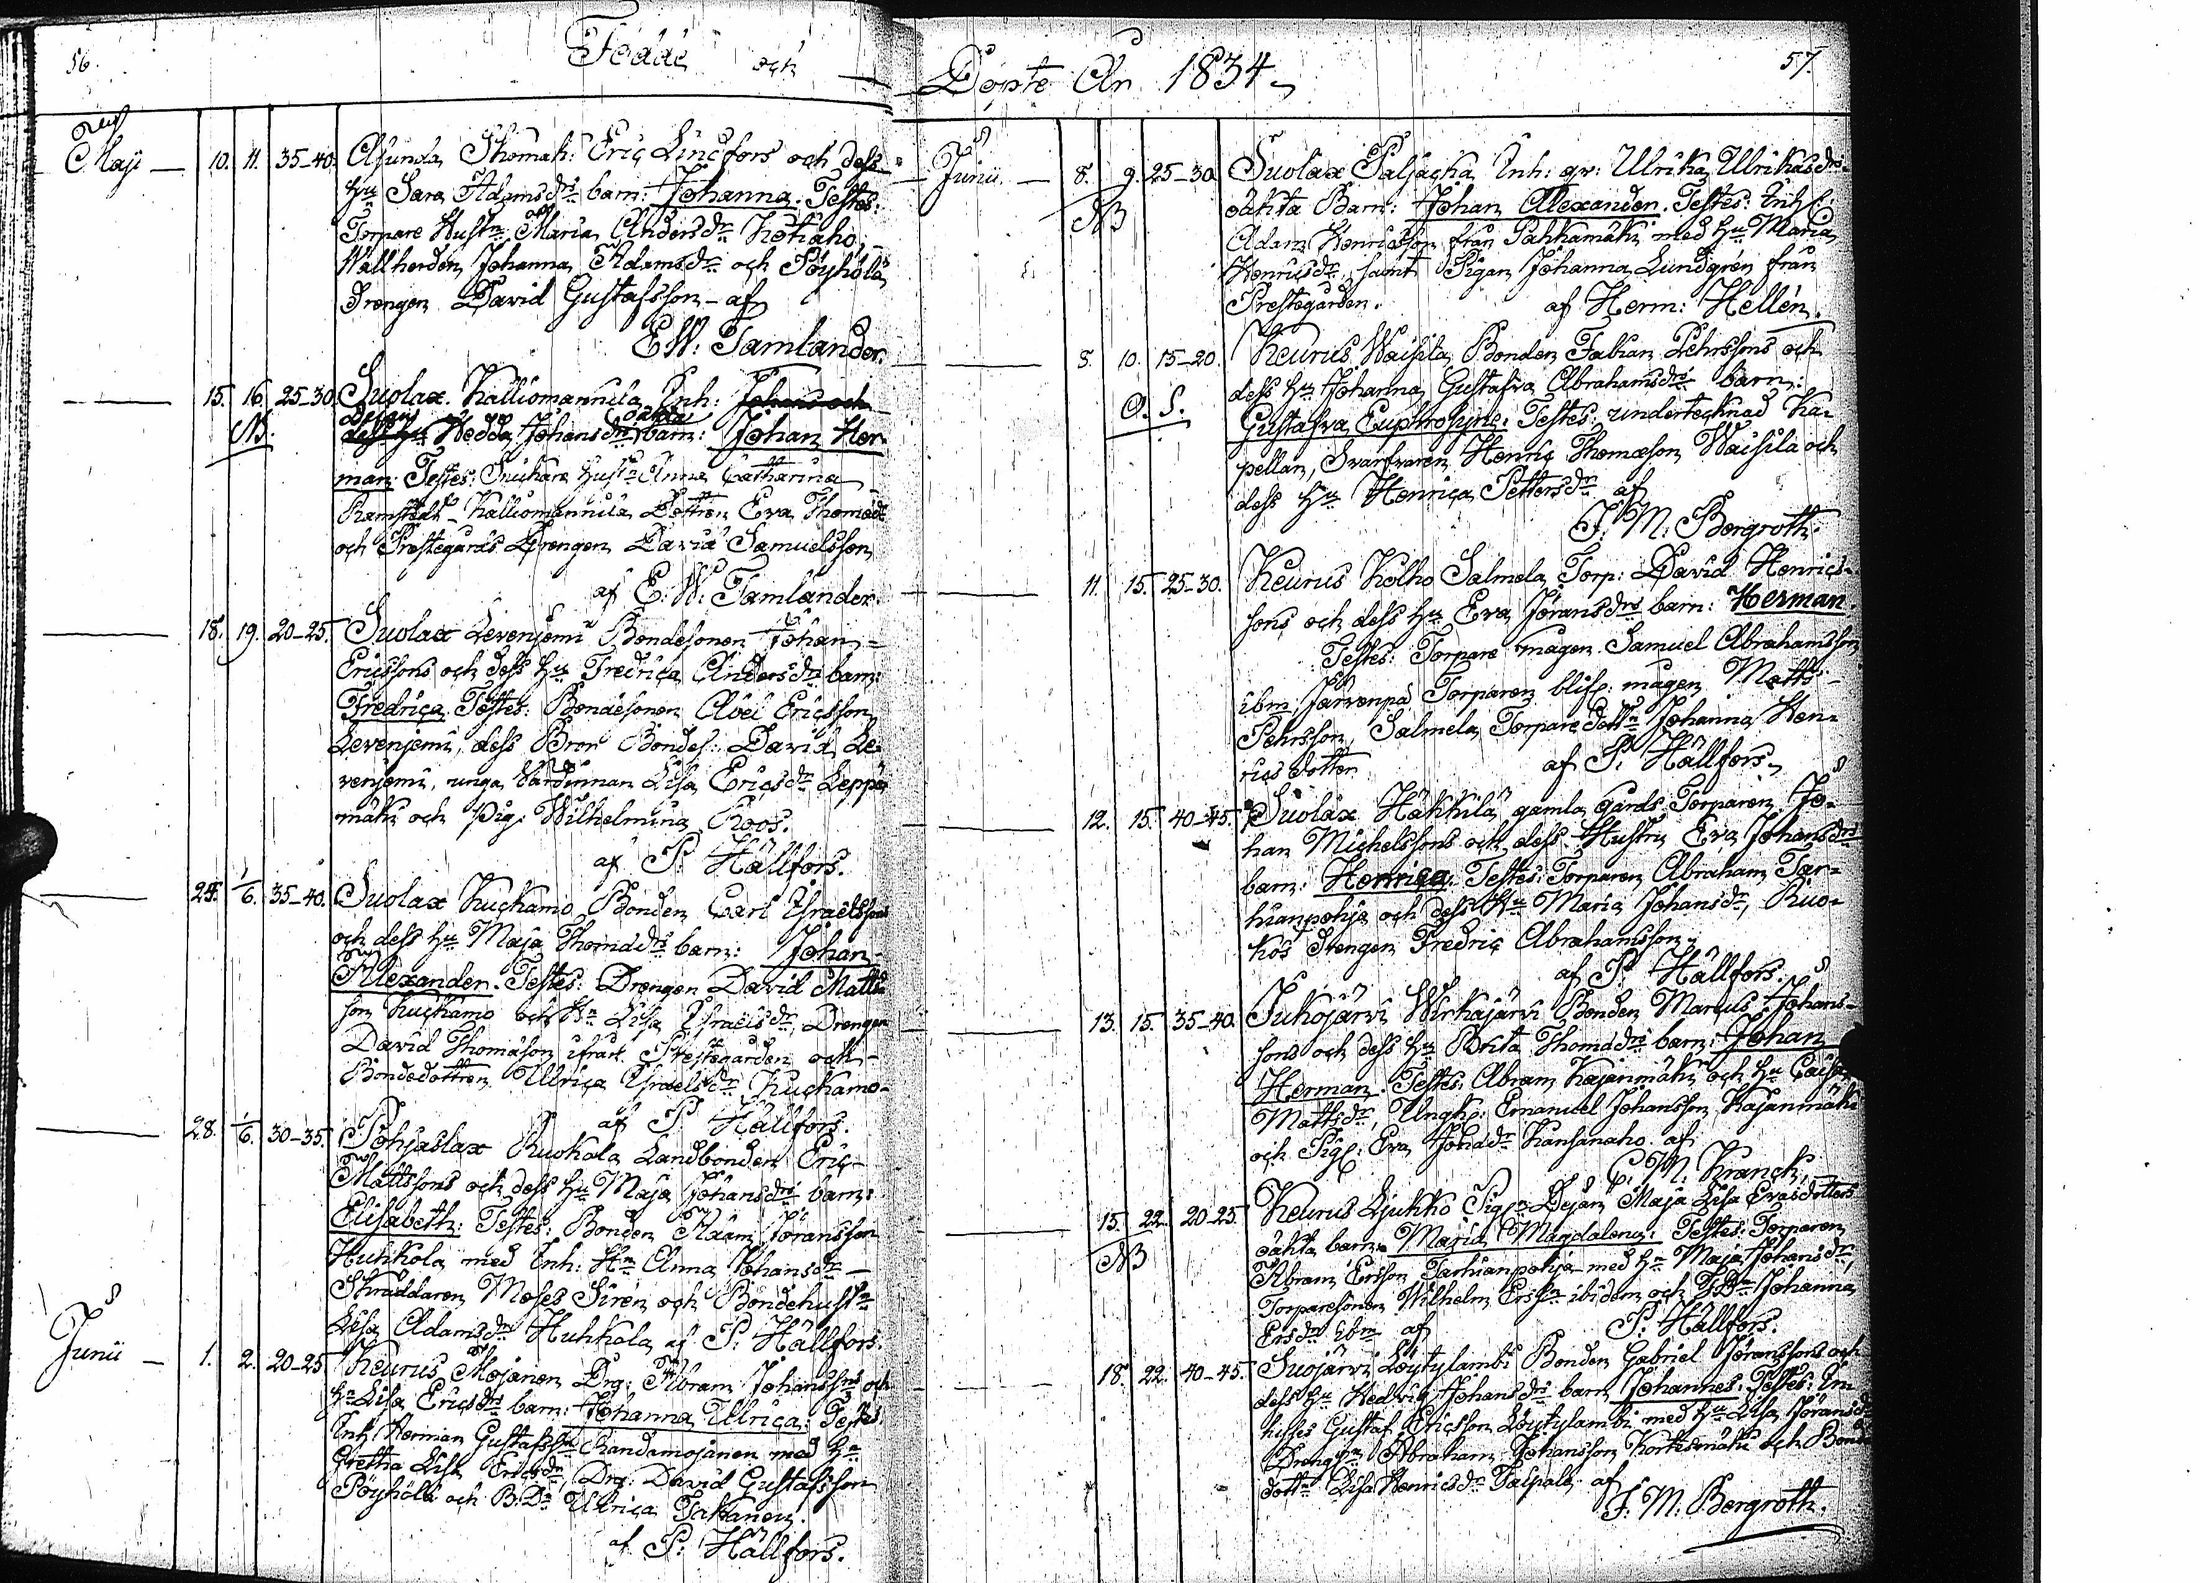 56.
Födde och
Maji — 10. 11. 35–40. Afunda Thomak: Eric Lindfors och dess
Hu Sara Adamsdrs barn: Johanna. Testes:
Torpare Hustn Maria Andersdr Kotiaho,
Wallherden Johanna Adamsdr och Pöyhölä
Drengen David Gustafsson – af
E W: Tamlander.
15. 16. 25–30. Suolax Kalliomannila Inh: Johans och
NB. dess hu Hedda Johansdrs oäkta barn: Johan Her-
man. Testes: Snickare Hustn Anna Catharina
Ramstedt – Kalliomannila Dottren Eva Thomædr
och Prestegårds Drengen David Samuelsson
af E. W: Tamlander.
18. 19. 20–25. Suolax Levenjemi Bondesonen Johan
Ericssons och dess hu Fredrica Andersdrs barn:
Fredrica. Testes: Bondesonen Abel Ericsson
Levenjemi, dess Bror Bondes: David Le-
venjemi, unga Värdinnan Lisa Ericsdr Leppä
mäki och Pig: Wilhelmina Roos.
af P. Hällfors.
24. 1/6. 35–40. Suolax Kuckamo Bonden Carl Israelssons
och dess hu Maja Thomædrs barn: Johan
Alexander. Testes: Drengen David Matts-
son Kuckamo och Hn Lisa Israelsdr, Drengen
David Thomason ifrån Prestegården och
Bondedottren Ulrica Israelsdr Kuckamo
af P. Hällfors.
28. 1/6. 30–35. Pohjaslax Ruokala Landbonden Eric
Mattssons och dess hu Maja Johansdrs barn:
Elisabeth: Testes: Bonden Adam Jöransson
Huhkola med Inh: Hn Anna Johansdr
Skräddaren Moses Siren och Bondehustn
Lisa Adamsdr Huhkola af P. Hällfors.
Junii — 1. 2. 20–25 Keurus Mojanen Drg: Abram Johanssons och
hn Lisa Ericsdrs barn: Johanna Ulrica: Testes:
Inh Herman Gustafsson Randamojanen med Hn
Gretha Lisa Ericsdr, Drg: David Gustafsson
Pöyhölä och B:Dr Ulrica
af P. Hällfors.
Döpte År 1834
57.
Junii — 8. 9. 25–30 Suolax Paljacka Inh: qv: Ulrika Ulrikasdrs
NB oäkta Barn: Johan Alexander. Testes: Inh:
Adam Henricsson från Pahkamäki med hu Maria
Henricsdr, samt Pigan Johanna Lundgrén från
Prestegården. af Herm: Hellén.
8. 10. 15–20. Keurus Waisila Bonden Fabian Pehrssons och
dess hu Johanna Gustafva Abrahamsdrs barn:
O. S. Gustafva Euphrosyne: Testes: undertecknad Ka-
pellan, Svarfvaren Henric Thomæson Waisila och
dess hu Henrica Pettersdr af
F. M: Bergroth.
11. 15. 25–30. Keurus Kolho Salmela Torp: David Henrics-
sons och dess hu Eva Jöransdrs barn: Herman.
Testes: Torpare mågen Samuel Abrahamsson
ibm, Järvenpä Torparen blifv: mågen Matts
Pehrsson, Salmela Torpare Dottn Johanna Hen-
rics dotter af P. Hällfors
12. 15. 40–45. Suolax Häkkilä gamla Gårds Torparen Jo-
han Michelssons och dess Hustru Eva Johansdrs
barn: Henrica. Testes: Torparen Abraham Tar-
hianpohja och dess Hu Maria Johansdr, Ruo-
kos Drengen Fredric Abrahamsson
af P. Hällfors.
13. 15. 35–40. Pukojärvi Wirkajärvi Bonden Marcus Johans-
sons och dess hu Brita Thomædrs barn: Johan
Herman. Testes: Abram Kajanmäki och hu Caisa
Mattsdr, Ungk: Emanuel Johansson Kajanmäki
och Pig: Eva Johadr Kansanaho af
C. M. Kranck.
15. 22. 20–25. Keurus Liukko Pigan Dejan Maja Lisa Evasdotters
NB oäkta barn: Maria Magdalena: Testes: Torparen
Abram Ersson Tarhianpohja med hu Maja Johansdr,
Torparesonen Wilhelm Erssn ibidem och Johanna
Ersdr ibm af P. Hällfors.
18. 22. 40–45. Suojärvi Löytylambi Bonden Gabriel Jöranssons och
dess hu Hedvig Johansdrs barn Johannes: Testes: In-
hises Gustaf Ericsson Löytylambi med hu Lisa Jöransdr
Drengn Abraham Johansson Kortesmäki och Bonde
dottn Lisa Henricsdr Taipale af
F. M: Bergroth.